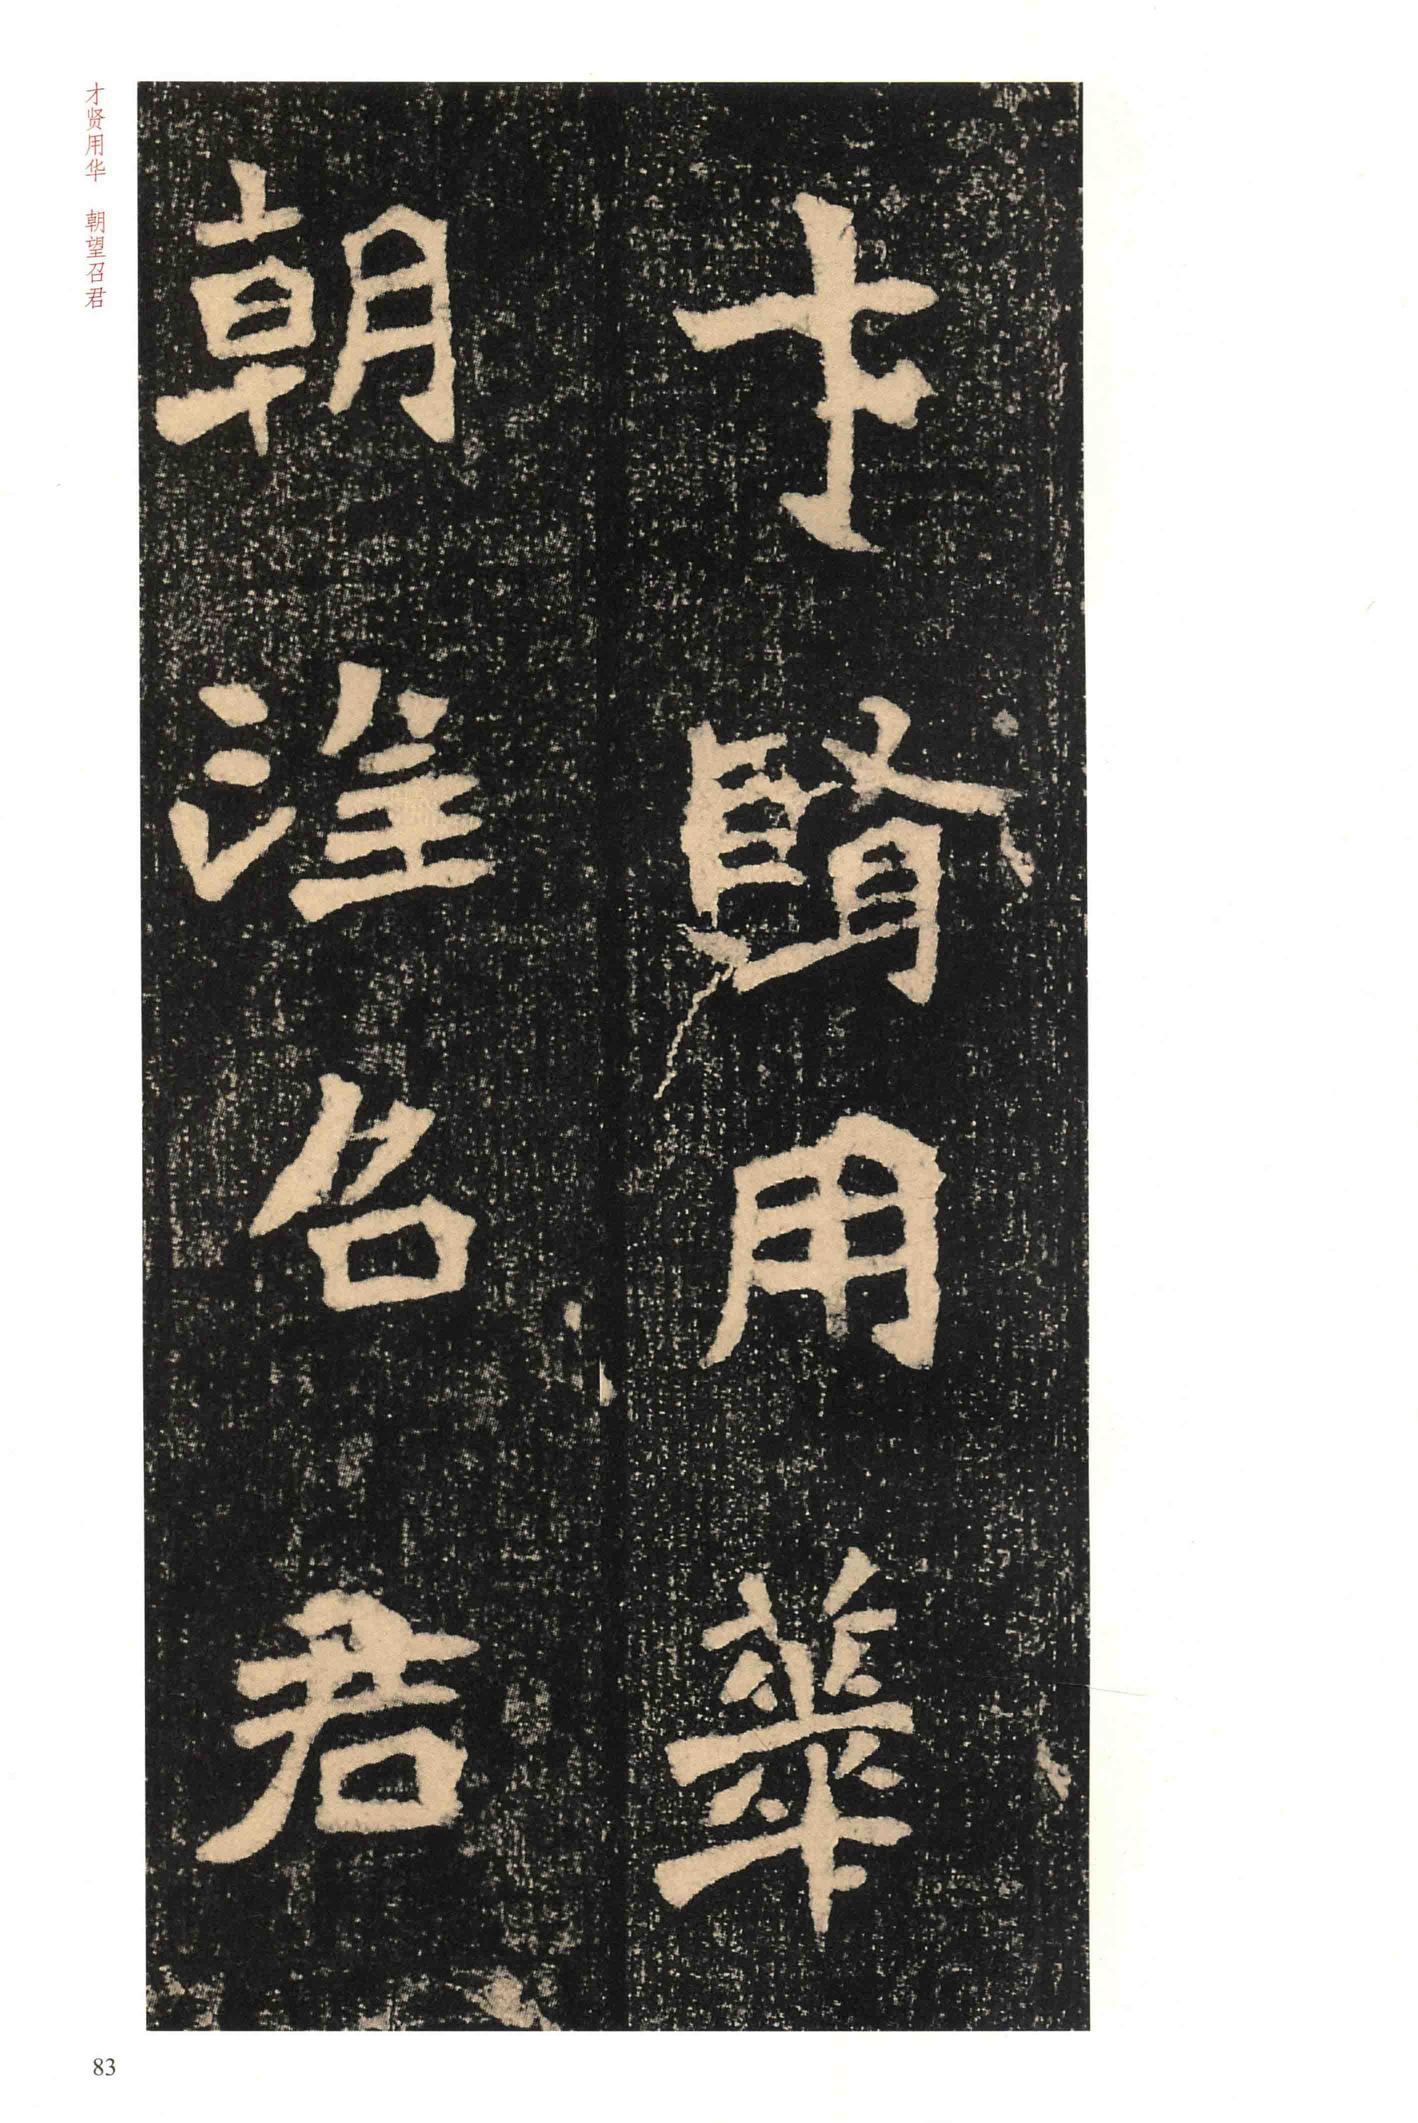 才賢用華
朝望召君
才贤用华 朝望召君
83